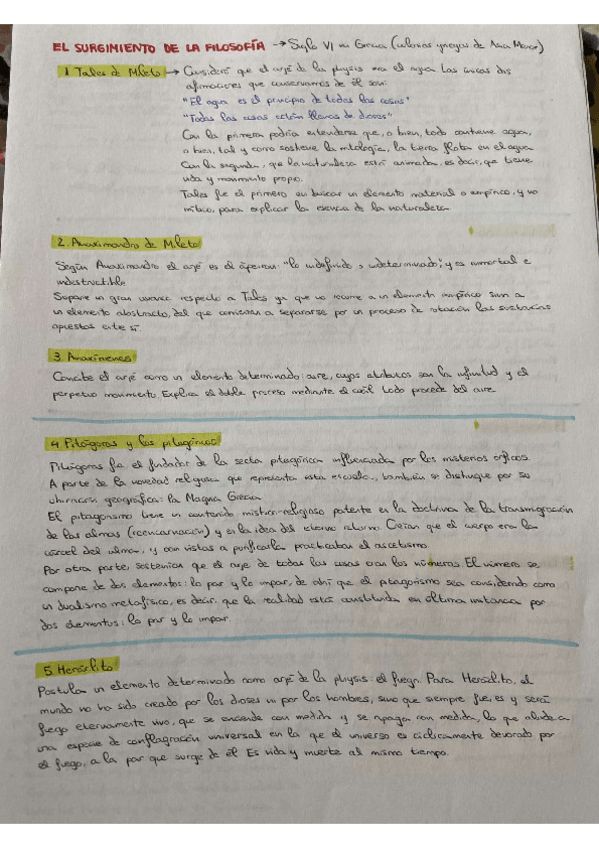 EL SURGIMIENTO DE LA FILOSOFÍA → Siglo VI en Grecia (colonias griegas de Asia Menor)
1. Tales de Mileto → Consideró que el arjé de la physis era el agua. Las únicas dos
afirmaciones que conservamos de él son:
"El agua es el principio de todas las cosas"
"Todas las cosas están llenas de dioses"
Con la primera podría entenderse que, o bien, todo contiene agua,
o bien, tal y como sostiene la mitología, la tierra flota en el agua
Con la segunda, que la naturaleza está animada, es decir, que tiene
vida y movimiento propio.
Tales fue el primero en buscar un elemento material o empírico, y no
mítico, para explicar la esencia de la naturaleza.
2. Anaximandro de Mileto
Según Anaximandro el arjé es el ápeiron: "lo indefinido, indeterminado; y es inmortal e
indestructible
Supone un gran avance respecto a Tales ya que no recurre a un elemento empírico sino a
un elemento abstracto, del que comienzan a separarse por un proceso de rotación las sustancias
opuestas entre sí.
3. Anaxímenes
Concibe el arjé como un elemento determinado: aire, cuyos atributos son la infinitud y el
perpetuo movimiento. Explica el doble proceso mediante el cuál todo procede del aire
4. Pitágoras y los pitagóricos
Pitágoras fue el fundador de la secta pitagórica influenciada por los misterios órficos.
A parte de la novedad religiosa que representa esta escuela, también se distingue por su
situación geográfica: la Magna Grecia
El pitagorismo tiene un contenido místico-religioso patente en la doctrina de la transmigración
de las almas (reencarnación) y en la idea del eterno retorno. Creían que el cuerpo era la
cárcel del alma, y con vistas a purificarla practicaban el ascetismo.
Por otra parte, sostenían que el arjé de todas las cosas eran los números. El número se
compone de dos elementos: lo par y lo impar, de ahí que el pitagorismo sea considerado como
un dualismo metafísico, es decir, que la realidad está constituida en última instancia por
dos elementos: lo par y lo impar.
5. Heráclito
Postula un elemento determinado como arjé de la physis: el fuego. Para Heráclito, el
mundo no ha sido creado por los dioses ni por los hombres, sino que siempre fue, es y será
fuego eternamente vivo, que se enciende con medida y se apaga con medida, lo que alude a
una especie de conflagración universal en la que el universo es cíclicamente devorado por
el fuego, a la par que surge de él. Es vida y muerte al mismo tiempo.